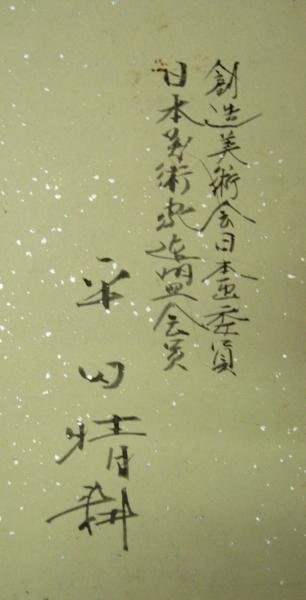 創造美術会日本画委員
日本美術家連盟会員
平田晴耕